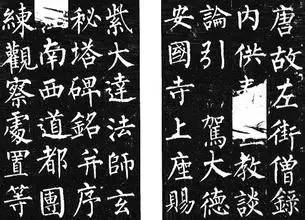 唐故左街僧錄
內供教談
論引 駕大德
安國寺上座賜
紫大達法師玄
秘塔碑銘并序
南西道都團
練觀察處置等